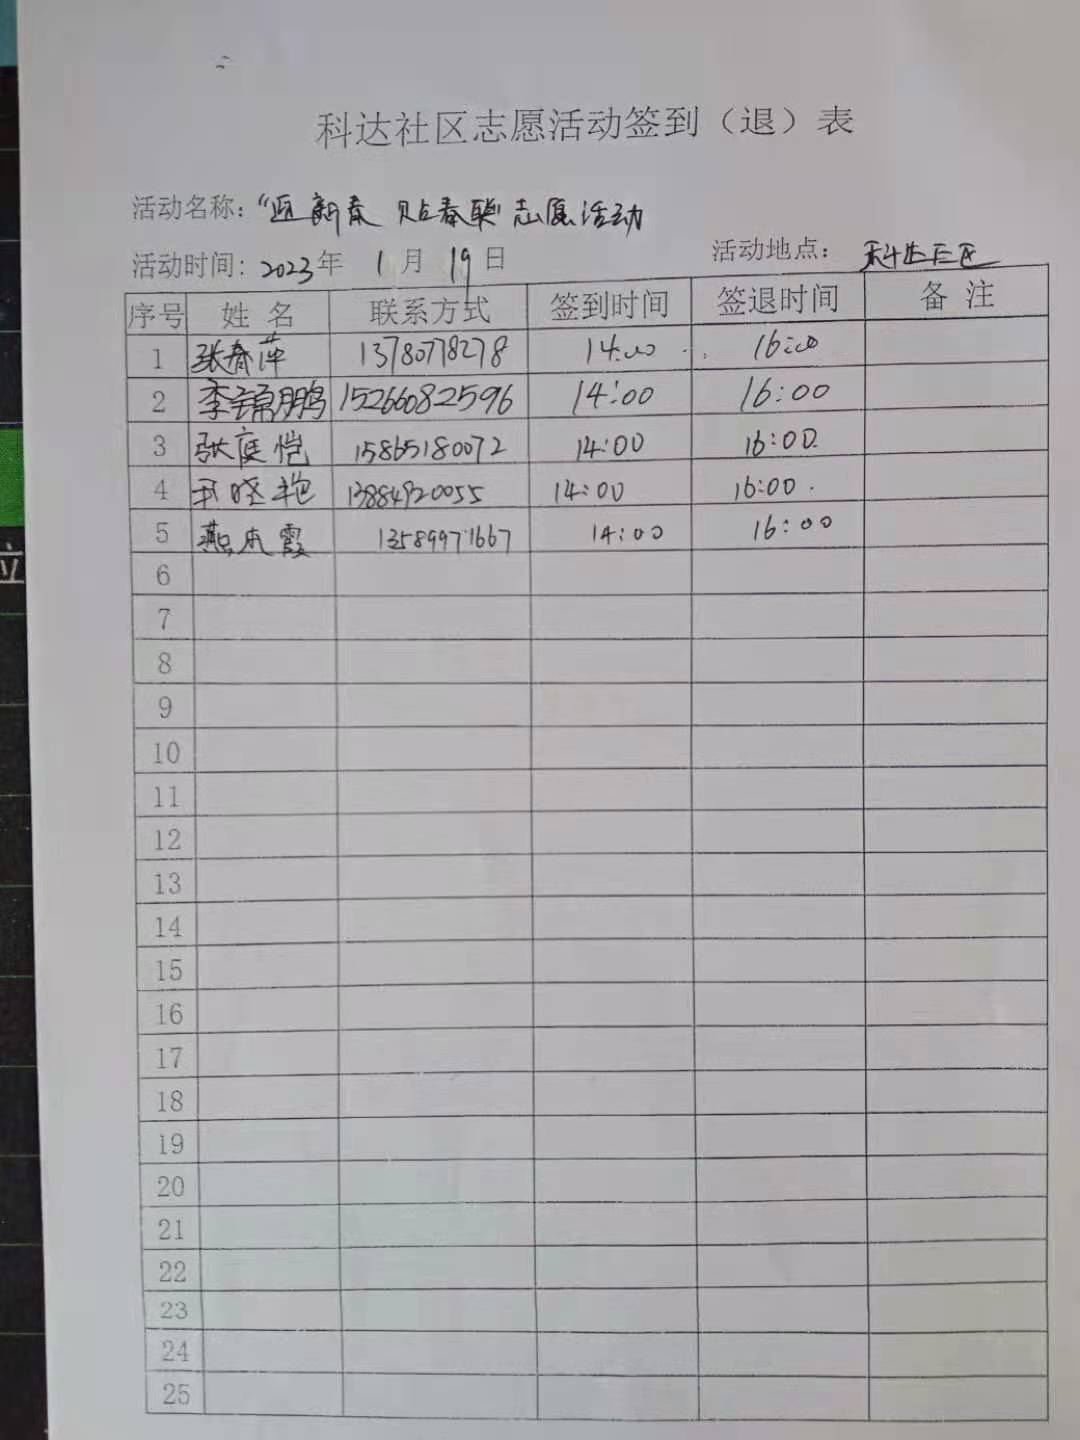 科达社区志愿活动签到（退）表
活动名称：“迎新春 贴春联”志愿活动
活动时间：2023年 1月 19日 活动地点：科达社区
序号 姓名 联系方式 签到时间 签退时间 备注
1 张春萍 13780778278 14:00 16:00
2 李锦鹏 15266082596 14:00 16:00
3 张庭恺 15865180072 14:00 16:00
4 晓艳 13884920055 14:00 16:00
5 燕本霞 13589971667 14:00 16:00
6
7
8
9
10
11
12
13
14
15
16
17
18
19
20
21
22
23
24
25
位